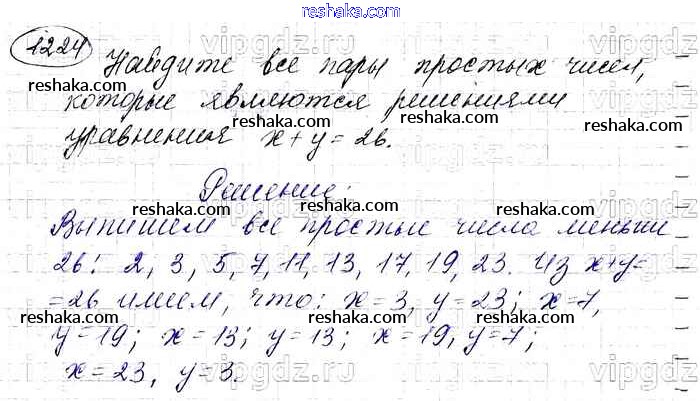 reshaka.com
1224
Найдите все пары простых чисел,
которые являются решениями
уравнения x + y = 26.
Решение:
Выпишем все простые числа меньши
26: 2, 3, 5, 7, 11, 13, 17, 19, 23. Из x+y=
=26 имеем, что: x=3, y=23; x=7,
y=19; x=13; y=13; x=19, y=7;
x=23, y=3.
vipgdz.com
vipgdz.com
reshaka.com
reshaka.com
reshaka.com
reshaka.com
reshaka.com
reshaka.com
reshaka.com
reshaka.com
reshaka.com
reshaka.com
reshaka.com
reshaka.com